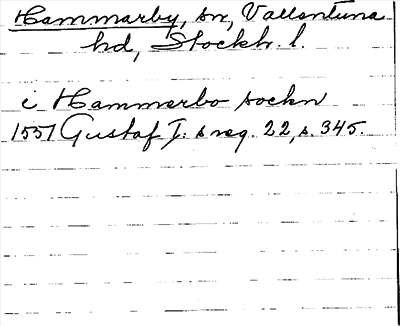 Hammarby, sn, Vallentuna
hd, Stockh. l.
i Hammarbo sockn
1557 Gustaf I:s reg. 22, s. 345.